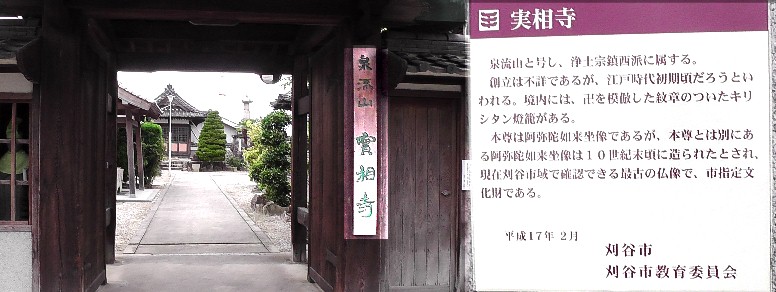 泉流山 實相寺
実相寺
泉流山と号し、浄土宗鎮西派に属する。
創立は不詳であるが、江戸時代初期頃だろうとい
われる。境内には、卍を模倣した紋章のついたキリ
シタン燈籠がある。
本尊は阿弥陀如来坐像であるが、本尊とは別にあ
る阿弥陀如来坐像は１０世紀末頃に造られたとされ、
現在刈谷市域で確認できる最古の仏像で、市指定文
化財である。
平成17年 2月
刈谷市
刈谷市教育委員会